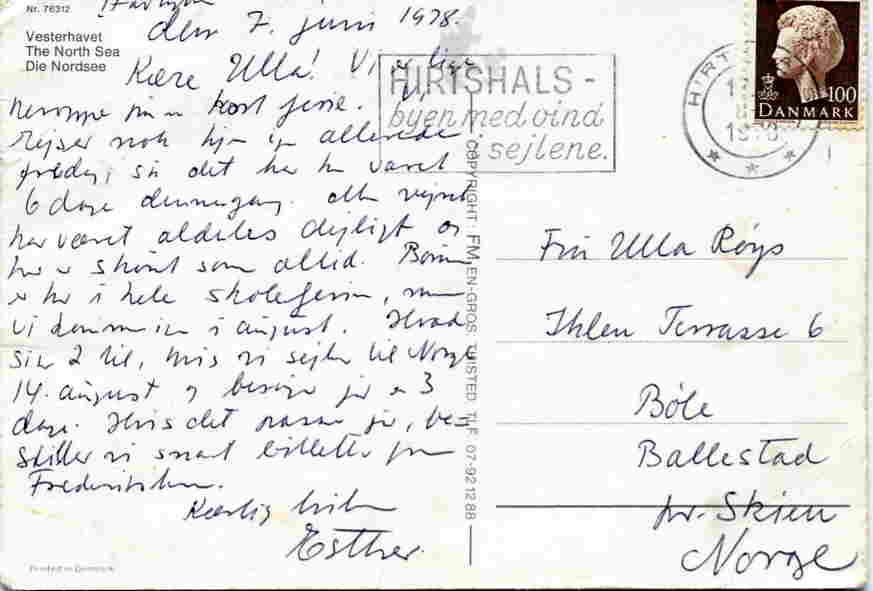 Nr. 76312
Vesterhavet
The North Sea
Die Nordsee
den 7. juni 1978.
Kære Ulla! Vi er lige
kort ferie. Vi
rejser nok hjem allerede
fredag, så det har kun varet
6 dage denne gang. Men vejret
har været aldeles dejligt og
her er skønt som altid. Børnene
er her i hele skoleferien, men
vi kommer i august. Hvad
siger I til, hvis vi sejler til Norge
14. august og besøger jer 3
dage. Hvis det passer jer, be-
stiller vi snart billetter fra
Frederikshavn.
Kærlig hilsen
Esther.
Printed in Denmark
COPYRIGHT: FM EN-GROS THISTED TLF. 07-92 12 88
HIRTSHALS -
byen med vind
i sejlene.
HIRT
DANMARK 100
Fru Ulla Røys
Ihlen Terrasse 6
Bøle
Ballestad
pr. Skien
Norge